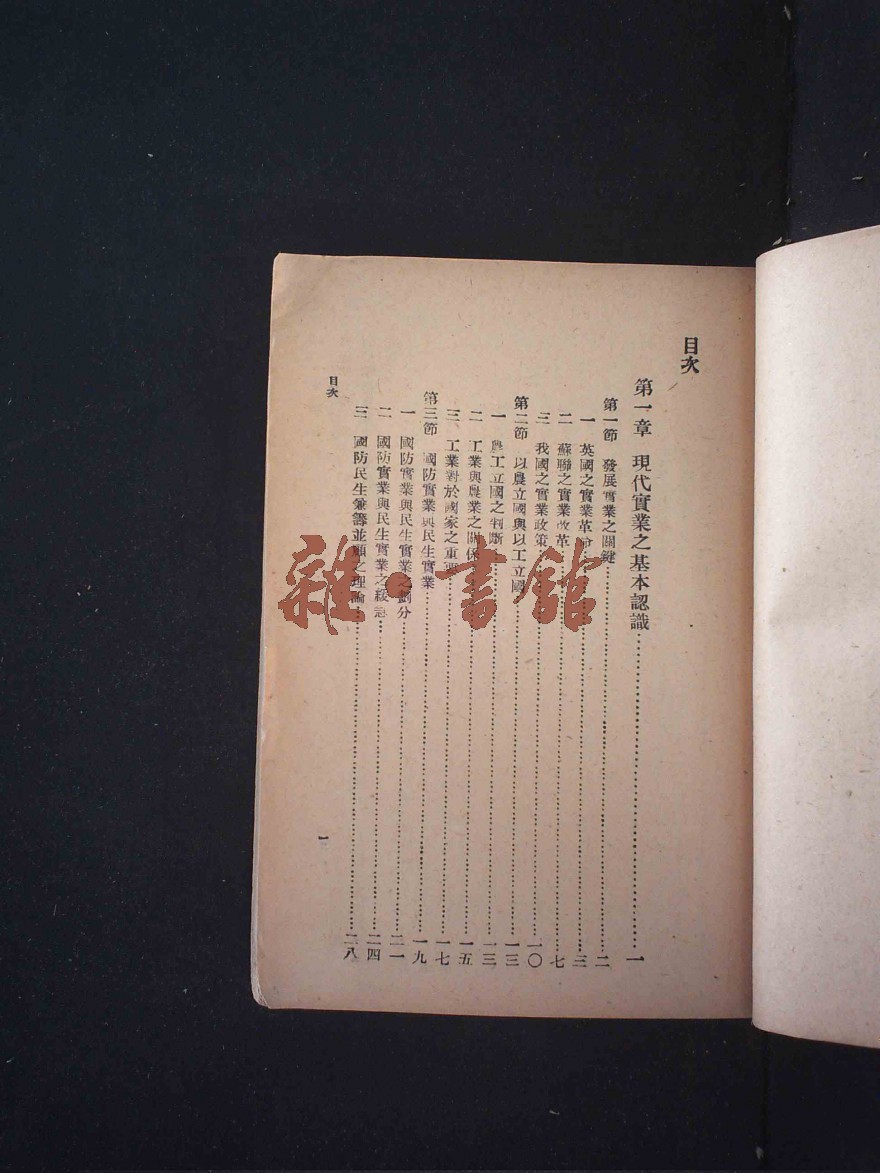 目次
第一章　現代實業之基本認識…………一
第一節　發展實業之關鍵…………二
一　英國之實業革命…………三
二　蘇聯之實業改革…………七
三　我國之實業政策…………一〇
第二節　以農立國與以工立國…………一三
一　農工立國之判斷…………一三
二　工業與農業之關係…………一五
三、工業對於國家之重要…………一七
第三節　國防實業與民生實業…………一九
一　國防實業與民生實業之劃分…………二一
二　國防實業與民生實業之緩急…………二四
三　國防民生兼籌並顧之理論…………二八
目次
一
雜·書館